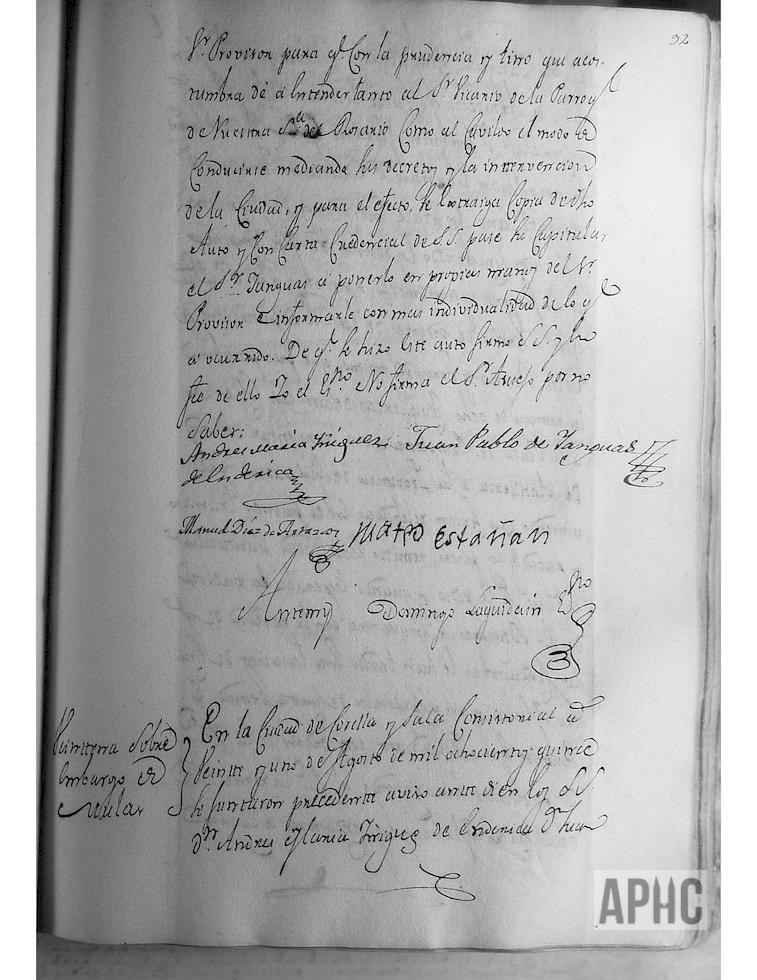 92
Sr. Provisor para q.e Con la prudencia y tino que acos-
tumbra dé á entender tanto al Sr. Vicario de la Parroq.
de Nuestra S.ra del Rosario Como al Cavildo el modo de
Conducirse mediando sus decretos y la intervencion
de la Ciudad, y para el efecto, se extraiga Copia de dho
Auto y Con Carta Credencial de S.S. pase su Capitular
el Sr. Tanguas á ponerlo en propias manos del Sr.
Provisor é informarle con mas individualidad de lo q.e
á ocurrido. De q.e se hizo este auto firmo S.S. y hu
fee de ello Yo el Es.no No firma el Sr. por no
Saver:
Andres Maria Iñiguez Juan Pablo de Tanguas
de
Manuel Diaz de Mateo Estañan
Antemi Domingo Laquidain Es.no
En la Ciudad de Corella y Sala Consistorial á
Veinte y uno de Agosto de mil ochocientos quince
se juntaron precedente aviso ante diem los S.S.
Dn. Andres Maria Iñiguez de Dn. Juan
sobre
embargo de
Mular
APHC